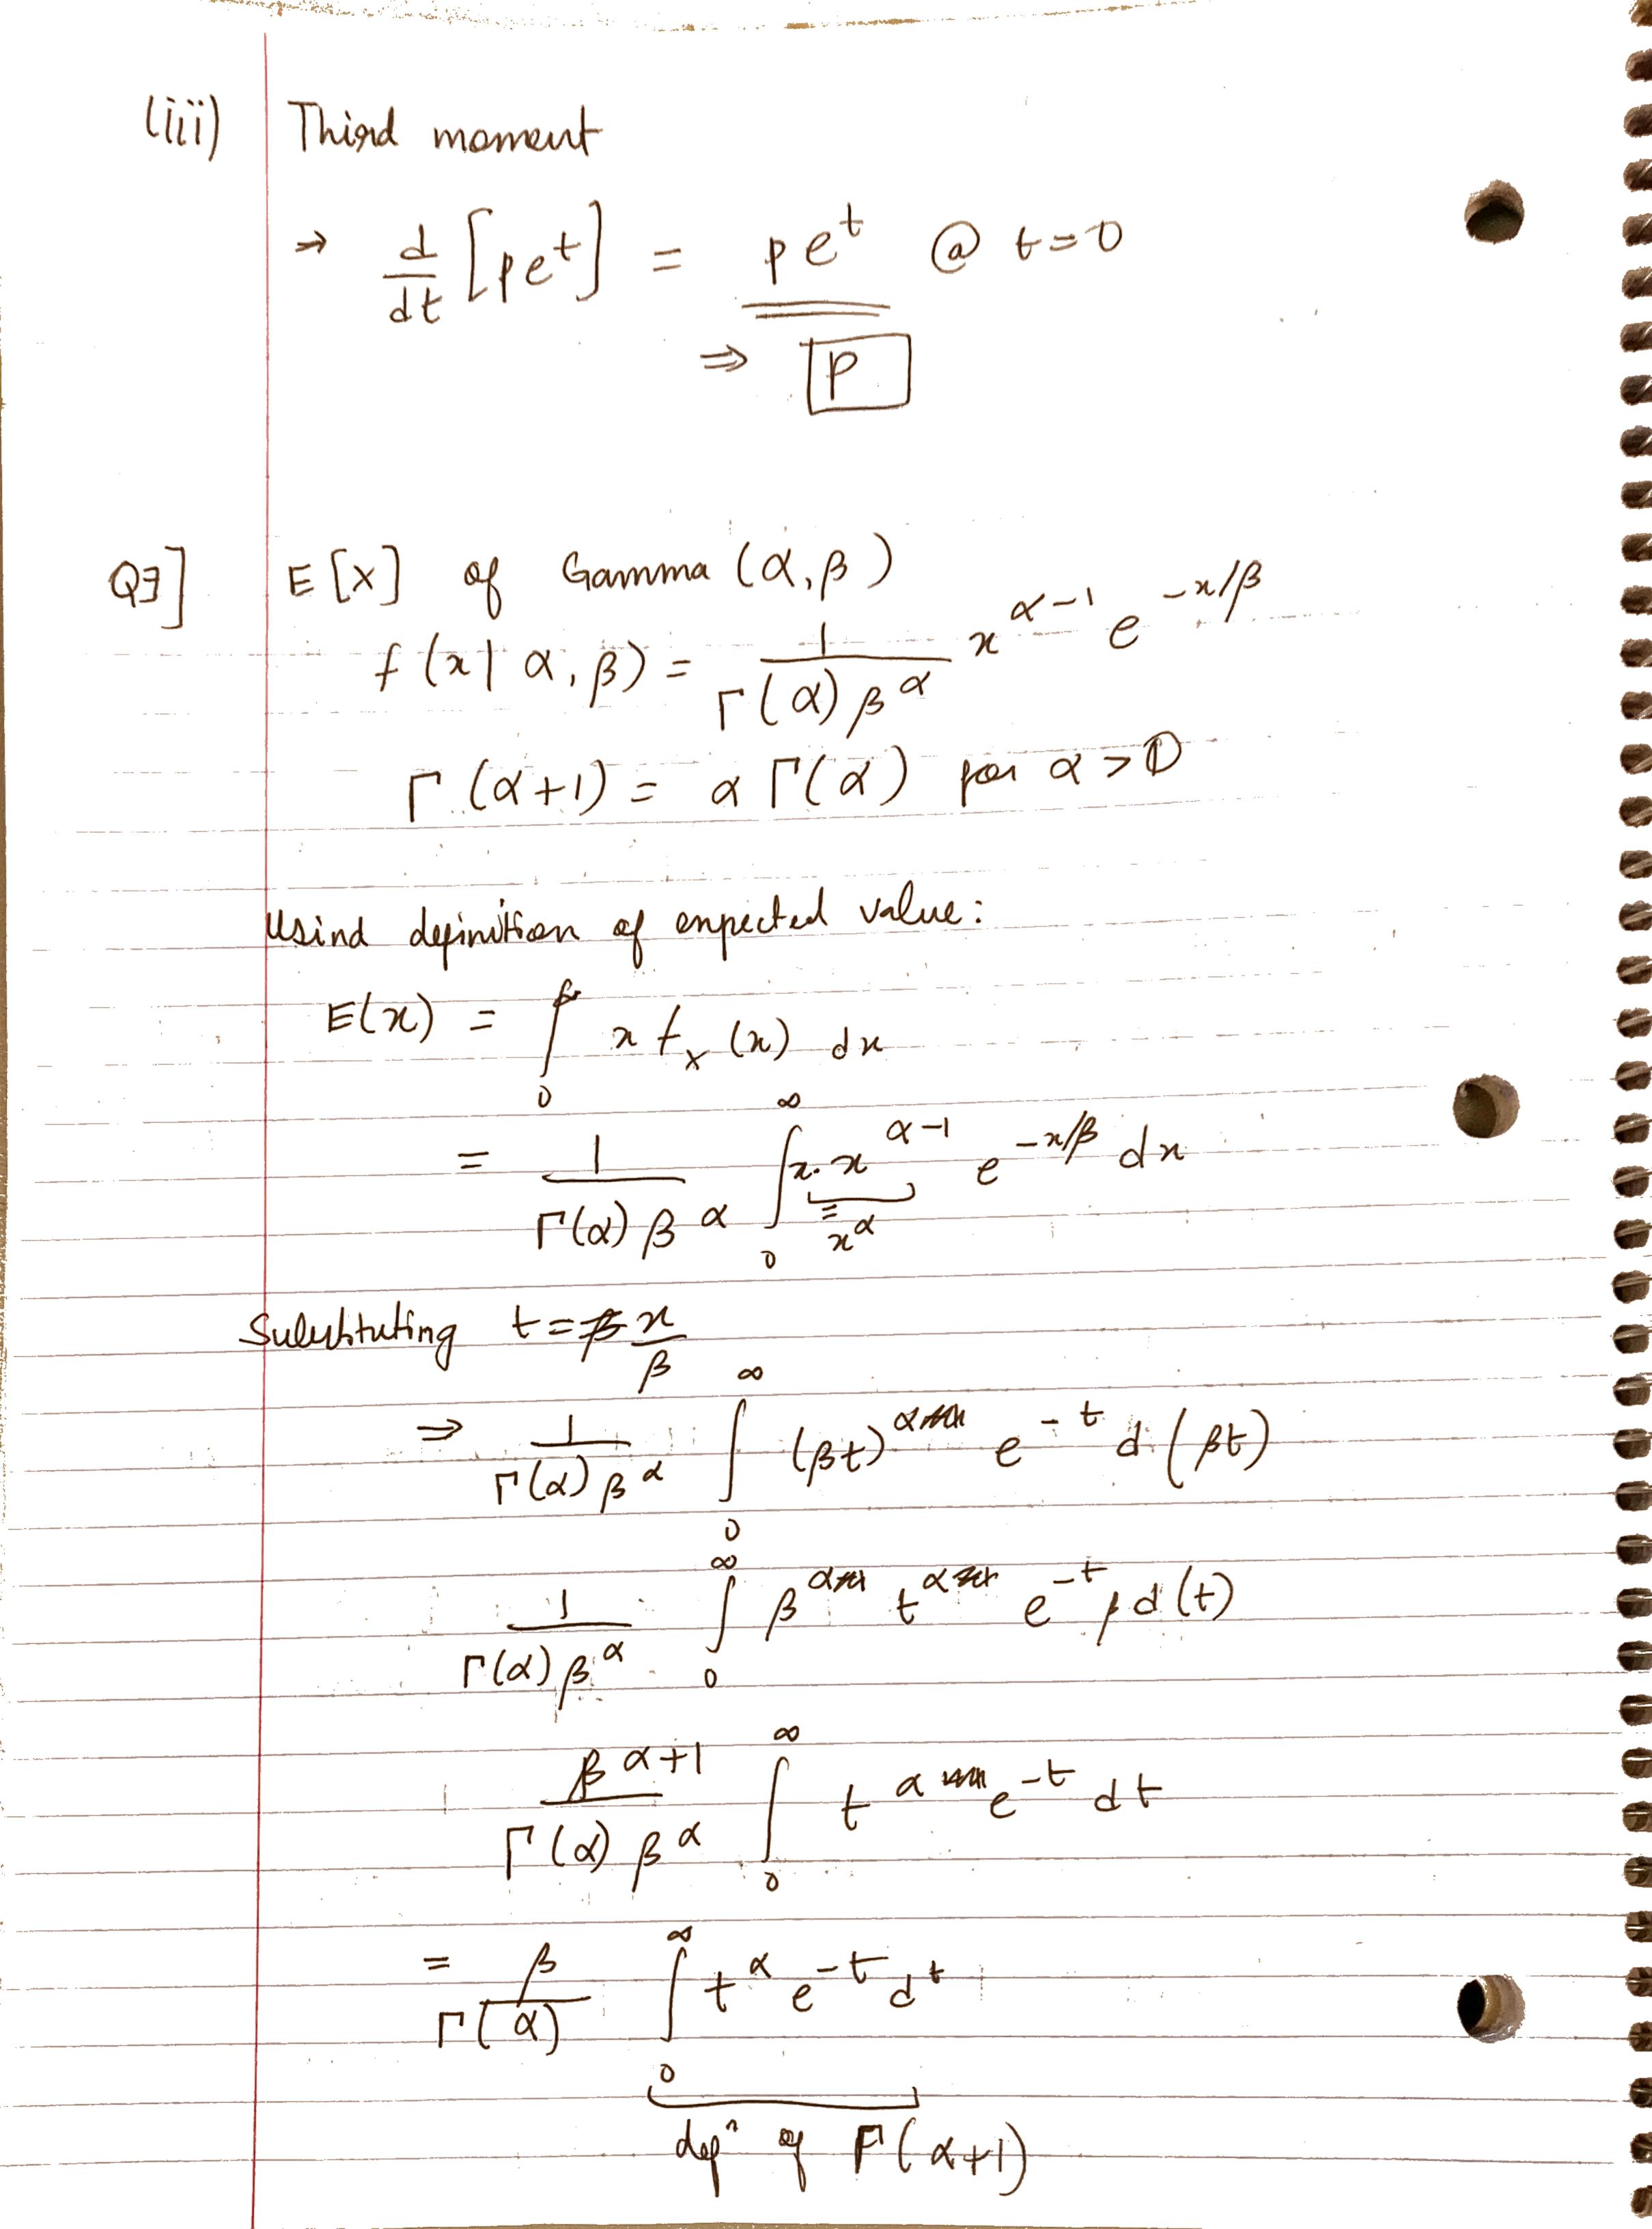 (iii) Third moment
⇒ d/dt [pe^t] = pe^t @ t=0
⇒ P
Q3] E[X] of Gamma (α,β)
f(x| α, β) = 1/(Γ(α) β^α) x^(α-1) e^(-x/β)
Γ(α+1) = α Γ(α) for α > 0
Usind definition of expected value:
E(x) = ∫_0 x f_X (x) dx
= 1/(Γ(α) β^α) ∫_0^∞ x. x^(α-1) e^(-x/β) dx
= x^α
Substituting t = x/β
⇒ 1/(Γ(α) β^α) ∫_0^∞ (βt)^α e^(-t) d(βt)
1/(Γ(α) β^α) ∫_0^∞ β^α t^α e^(-t) β d(t)
β^(α+1)/(Γ(α) β^α) ∫_0^∞ t^α e^(-t) dt
= β/Γ(α) ∫_0^∞ t^α e^(-t) dt
defⁿ of Γ(α+1)